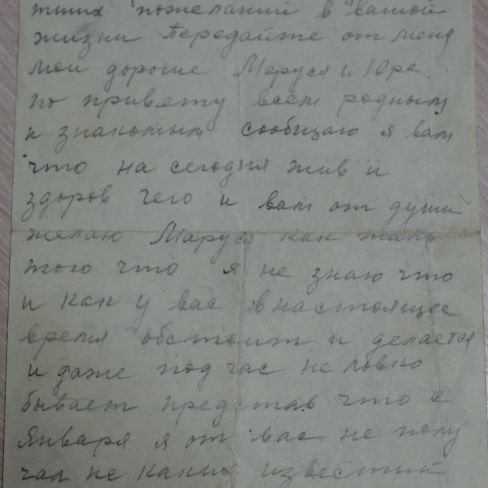 тших пожеланий в вашой
жизни Передайте от меня
мои дорогие Маруся и Юра.
по привету всем родным
и знакомым сообщаю я вам
что на сегодня жив и
здоров чего и вам от души
желаю Маруся как жаль
того что я не знаю что
и как у вас в настоящее
время обстоит и делается
и даже под час не ловко
бывает представ что с
Января я от вас не полу
чал не каких известий